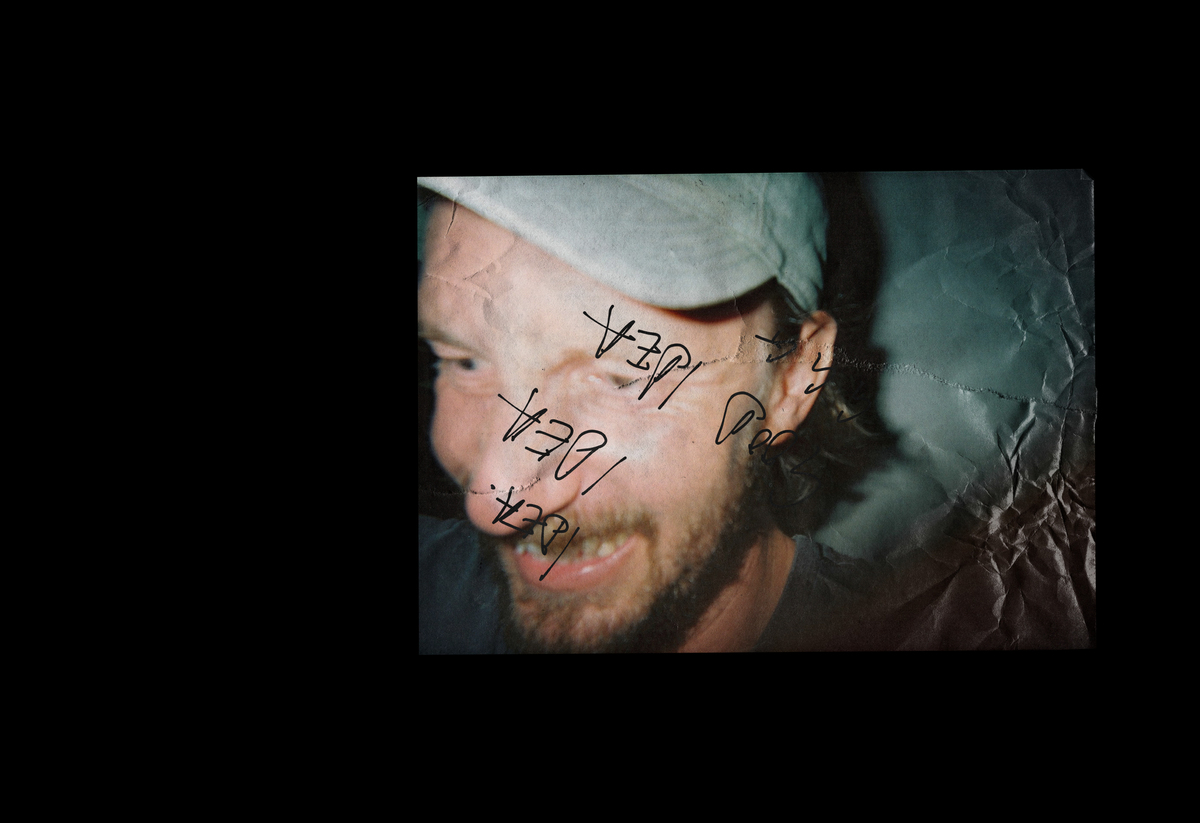 IDEA
IDEA
IDEA